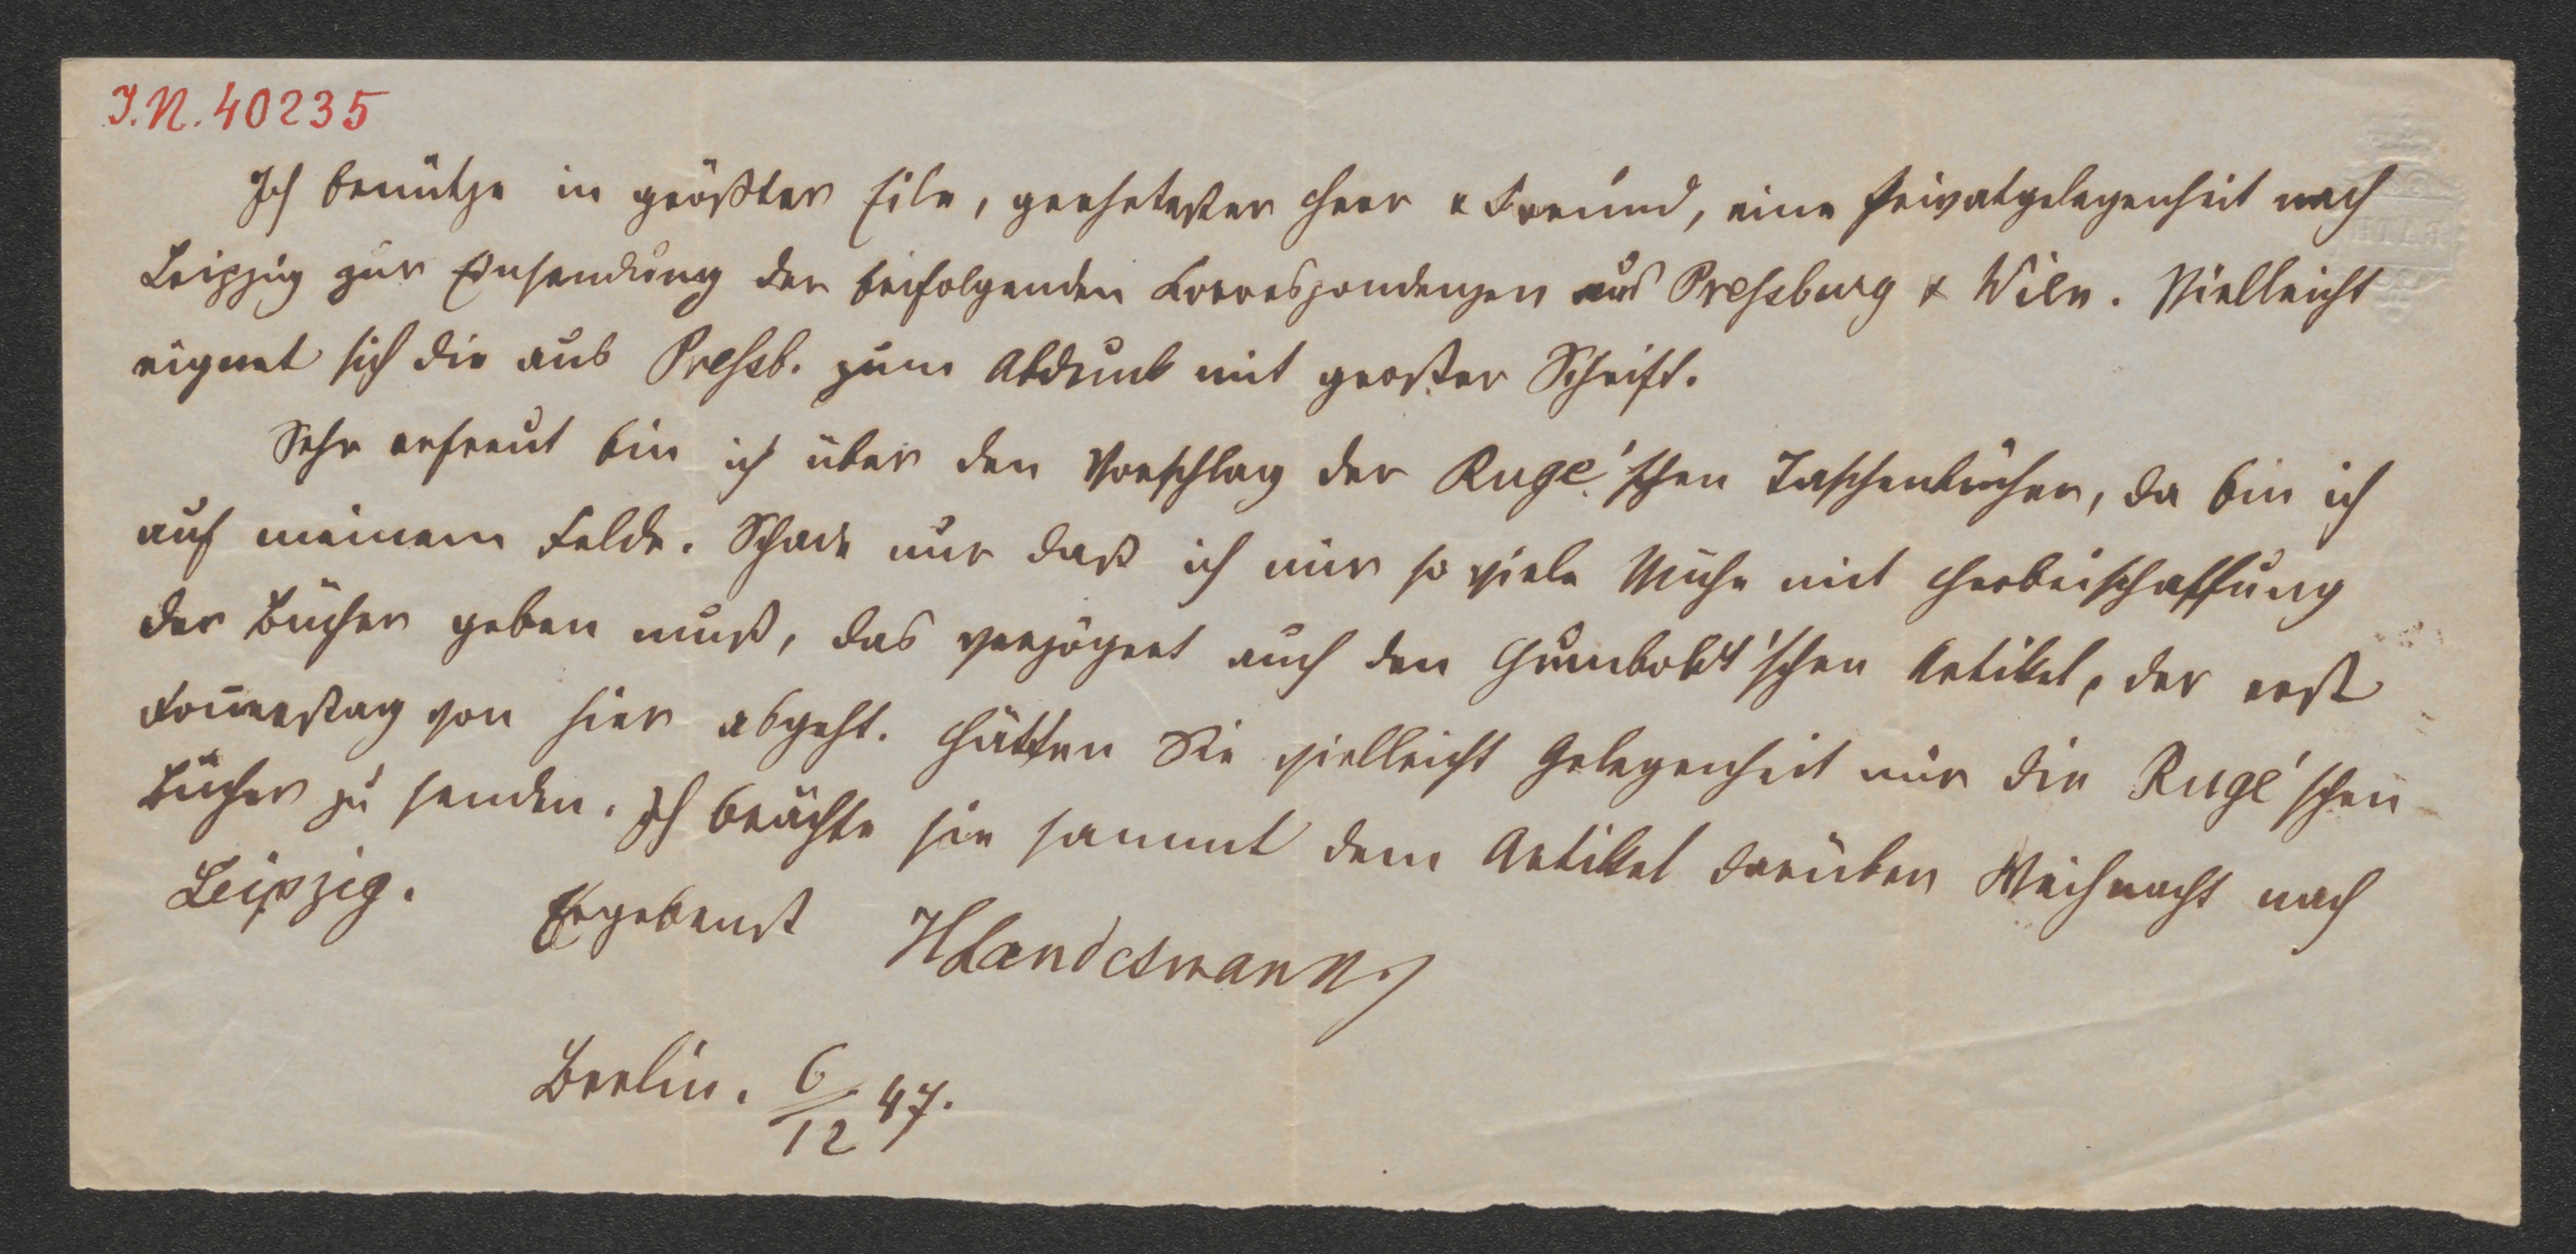 I.N. 40235
Ich benütze in größter Eile, geehrtester Herr & Freund, eine Privatgelegenheit nach
Leipzig zur Einsendung der beifolgenden Korrespondenzen aus Pressburg & Wien. Vielleicht
eignet sich die aus Pressb. zum Abdruck mit großer Schrift.
Sehr erfreut bin ich über den Vorschlag der Ruge'schen Taschenbücher, da bin ich
auf meinem Felde. Schade nur daß ich mir so viele Mühe mit Herbeischaffung
der Bücher geben muß, das verzögert auch den Humboldt'schen Artikel, der erst
Donnerstag von hier abgeht. Hätten Sie vielleicht Gelegenheit mir die Ruge'schen
Bücher zu senden. Ich brächte sie sammt dem Artikel darüber Weihnacht nach
Leipzig.
Ergebenst HLandesmann
Berlin. 6/12 47.